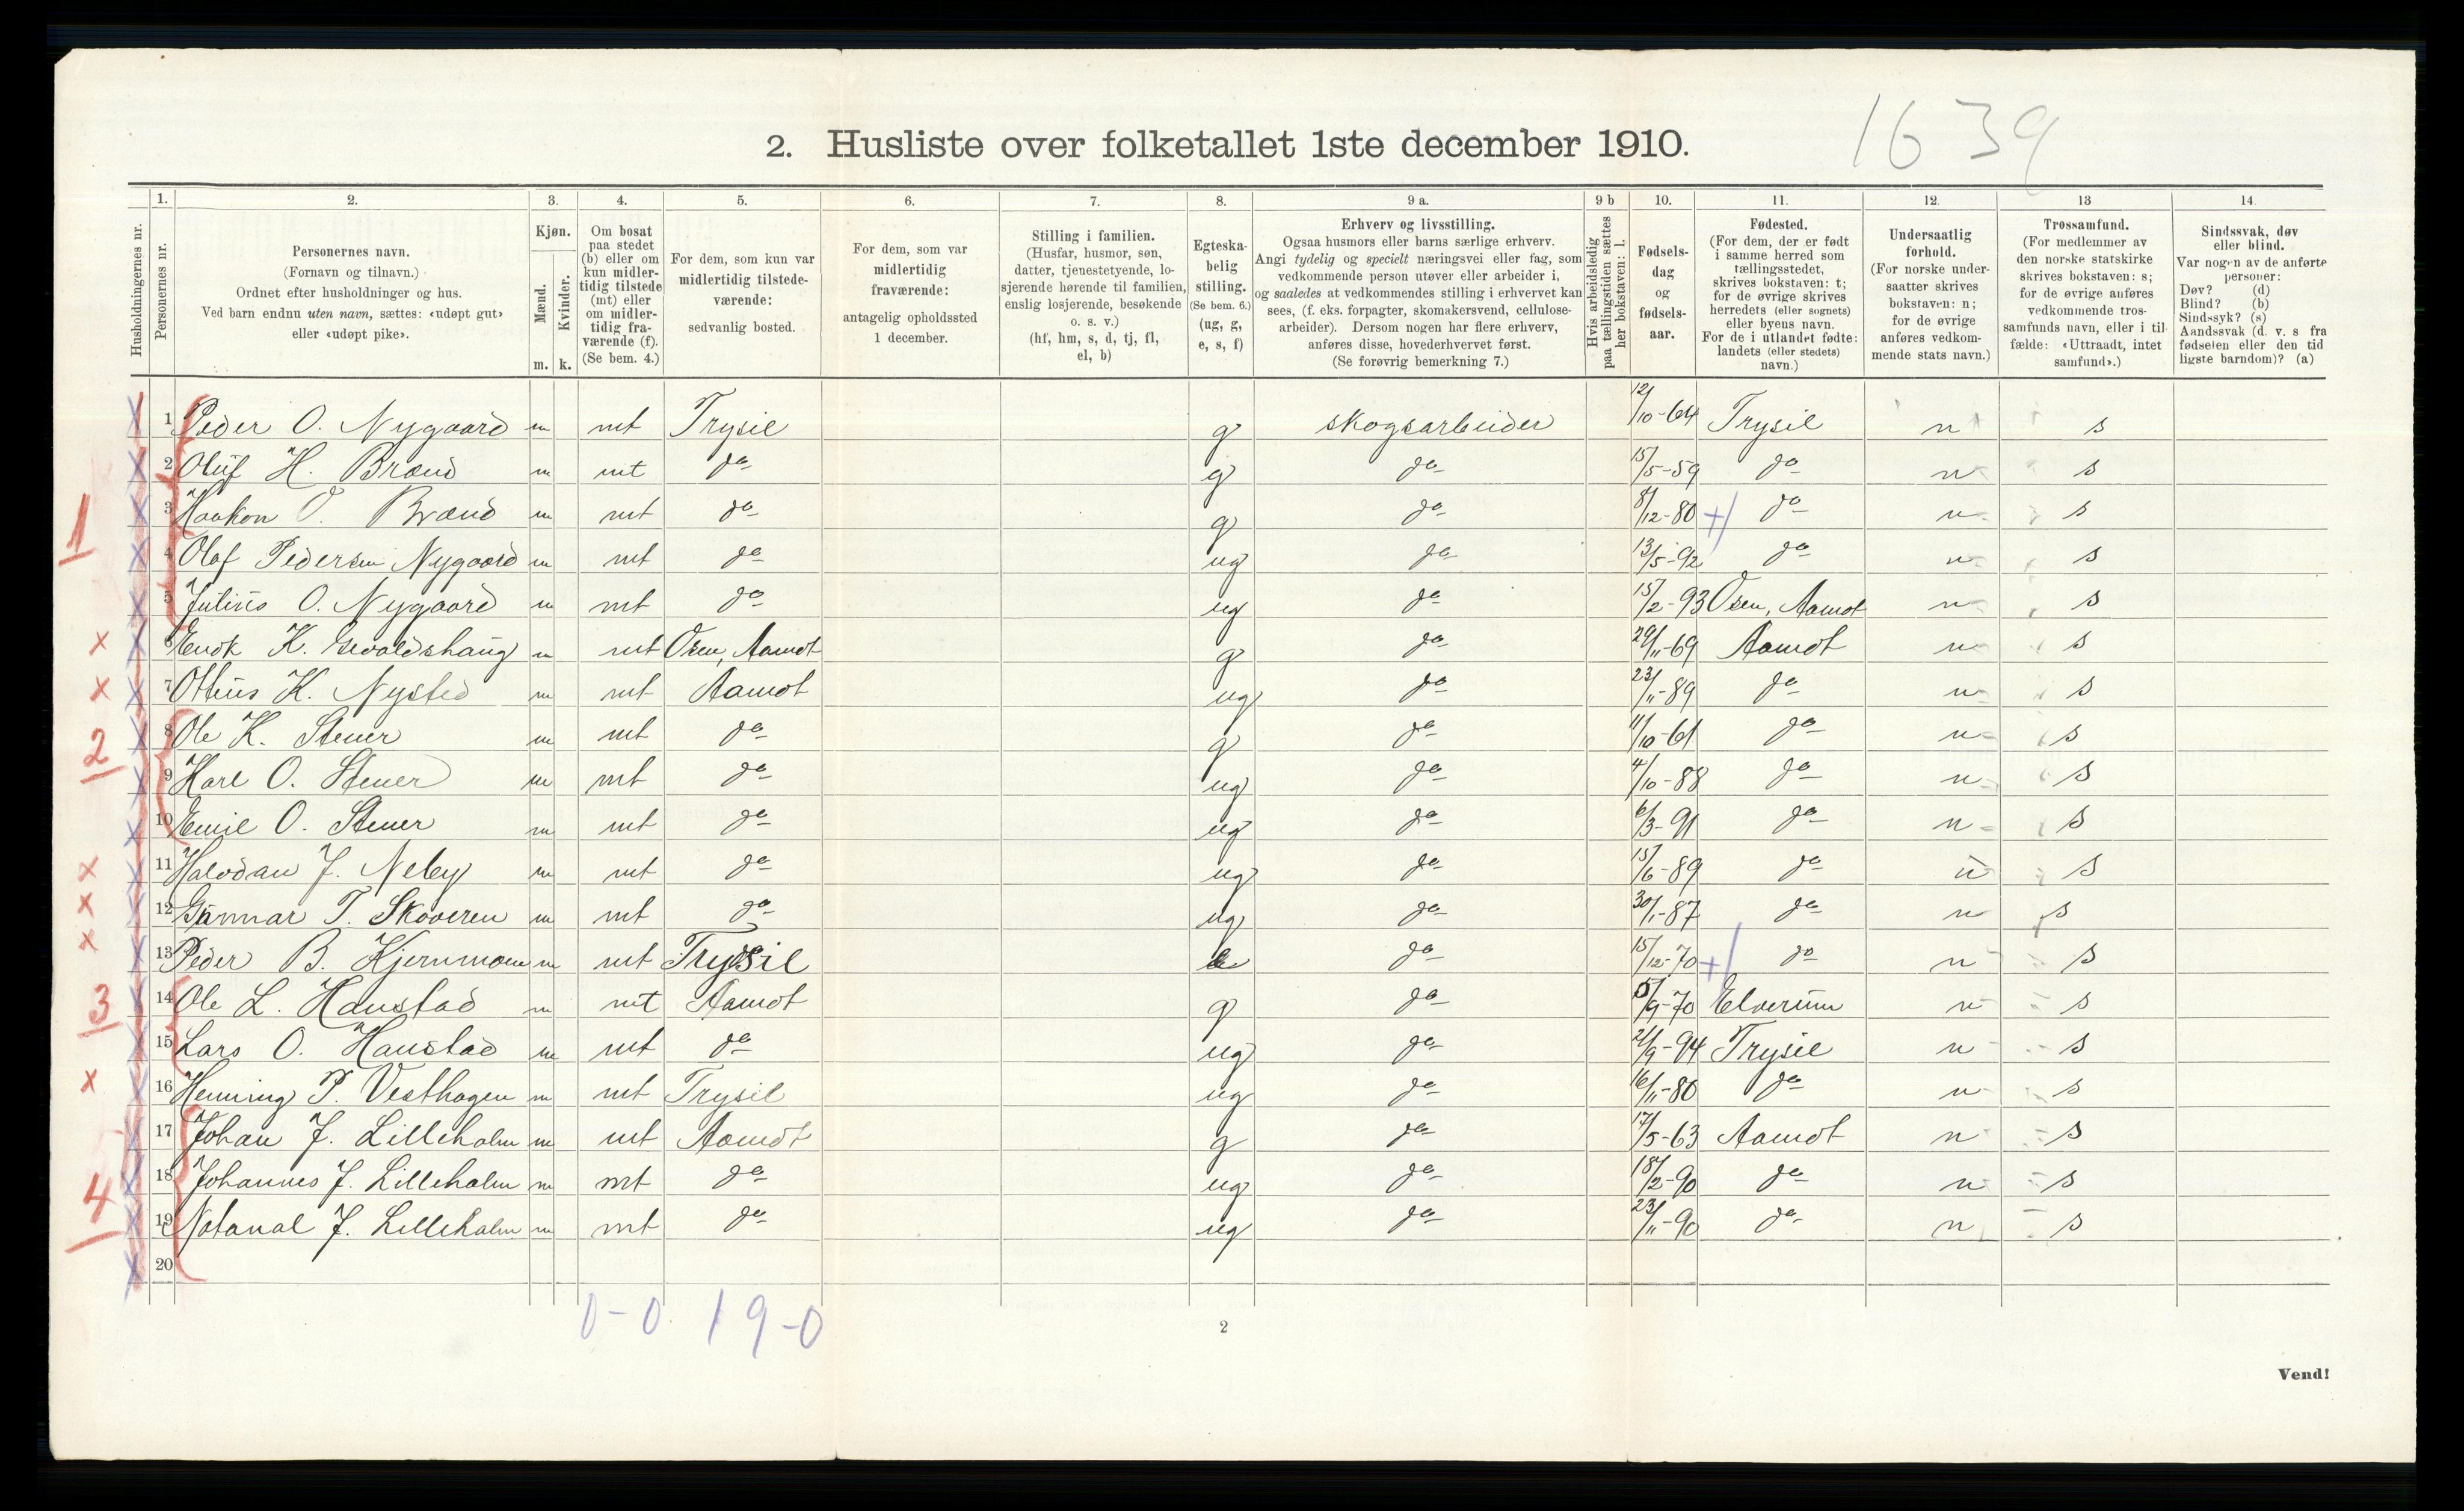 1639
2. Husliste over folketallet 1ste december 1910.
Husholdningernes nr.
1. Personernes nr.
2. Personernes navn. (Fornavn og tilnavn.) Ordnet efter husholdninger og hus. Ved barn endnu uten navn, sættes: «udøpt gut» eller «udøpt pike».
3. Kjøn. Mænd. m. Kvinder. k.
4. Om bosat paa stedet (b) eller om kun midlertidig tilstede (mt) eller om midlertidig fraværende (f). (Se bem. 4.)
5. For dem, som kun var midlertidig tilstedeværende: sedvanlig bosted.
6. For dem, som var midlertidig fraværende: antagelig opholdssted 1 december.
7. Stilling i familien. (Husfar, husmor, søn, datter, tjenestetyende, losjerende hørende til familien, enslig losjerende, besøkende o. s. v.) (hf, hm, s, d, tj, fl, el, b)
8. Egteskabelig stilling. (Se bem. 6.) (ug, g, e, s, f)
9 a. Erhverv og livsstilling. Ogsaa husmors eller barns særlige erhverv. Angi tydelig og specielt næringsvei eller fag, som vedkommende person utøver eller arbeider i, og saaledes at vedkommendes stilling i erhvervet kan sees, (f. eks. forpagter, skomakersvend, cellulosearbeider). Dersom nogen har flere erhverv, anføres disse, hovederhvervet først. (Se forøvrig bemerkning 7.)
9 b Hvis arbeidsledig paa tællingstiden sættes her bokstaven: l.
10. Fødselsdag og fødselsaar.
11. Fødested. (For dem, der er født i samme herred som tællingsstedet, skrives bokstaven: t; for de øvrige skrives herredets (eller sognets) eller byens navn. For de i utlandet fødte: landets (eller stedets) navn.)
12. Undersaatlig forhold. (For norske undersaatter skrives bokstaven: n; for de øvrige anføres vedkommende stats navn.)
13 Trossamfund. (For medlemmer av den norske statskirke skrives bokstaven: s; for de øvrige anføres vedkommende trossamfunds navn, eller i tilfælde: «Uttraadt, intet samfund».)
14. Sindssvak, døv eller blind. Var nogen av de anførte personer: Døv? (d) Blind? (b) Sindssyk? (s) Aandssvak (d. v. s fra fødselen eller den tidligste barndom)? (a)
1 Peder O. Nygaard m mt Trysil g skogsarbeider 12/10-64 Trysil n s
2 Oluf H. Brænd m mt do g do 15/5-59 do n s
3 Haakon O. Brænd m mt do g do 8/12-80 do n s
4 Olaf Pedersen Nygaard m mt do ug do 13/5-92 do n s
5 Julius O. Nygaard m mt do ug do 15/2-93 Osen, Aamot n s
6 K. m mt Osen, Aamot g do 29/11-69 Aamot n s
7 Otinus K. Nysted m mt Aamot ug do 23/11-89 do n s
8 Ole K. Stener m mt do g do 11/10-61 do n s
9 Karl O. Stener m mt do ug do 4/10-88 do n s
10 Emil O. Stener m mt do ug do 6/3-91 do n s
11 Halvdan J. Neby m mt do ug do 15/6-89 do n s
12 Gunnar T. Skoveren m mt do ug do 30/1-87 do n s
13 Peder B. Kjernmoen m mt Trysil e do 15/12-70 do n s
14 Ole L. Hanstad m mt Aamot g do 5/9-70 Elverum n s
15 Lars O. Hanstad m mt do ug do 21/9-94 Trysil n s
16 Henning P. Vesthagen m mt Trysil ug do 16/11-80 do n s
17 Johan J. Lilleholm m mt Aamot g do 17/5-63 Aamot n s
18 Johannes J. Lilleholm m mt do ug do 18/2-90 do n s
19 Natanal J. Lilleholm m mt do ug do 23/11-90 do n s
20
1
2
3
4
0-0 19-0
2
Vend!